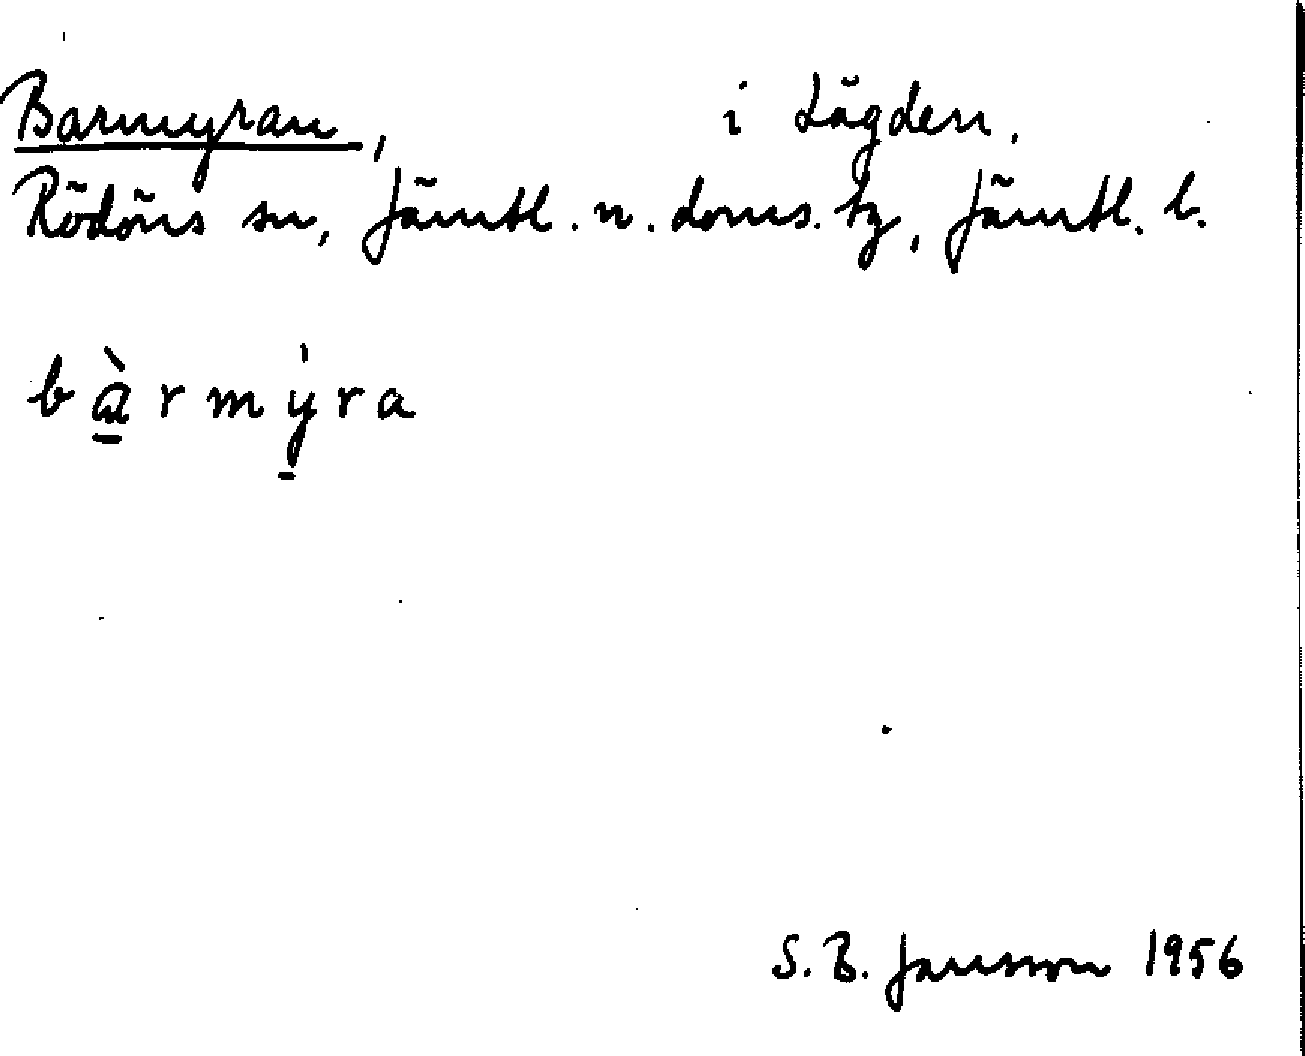 Barmyran, i Lägden.
Rödöns sn, Jämtl. n. doms. tg, Jämtl. l.
bàrmýra
S. B. Jansson 1956